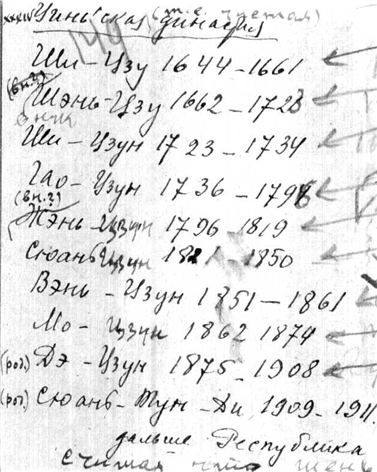 XXXIV Циньская династия (т.е. чистая)
Ши-Цзу 1644-1661
(вн.?)
Шэнь-Цзу 1662-1723
внук
Ши-Цзун 1723-1734
Гао-Цзун 1736-1796
(вн.?)
Жэнь-Цзун 1796-1819
Сюань-Цзун 1821-1850
Вэнь-Цзун 1851-1861
Мо-Цзун 1862 1874
(род.) Дэ-Цзун 1875-1908
(род.) Сюань-Тун-Ди 1909-1911
дальше Республика
считая что